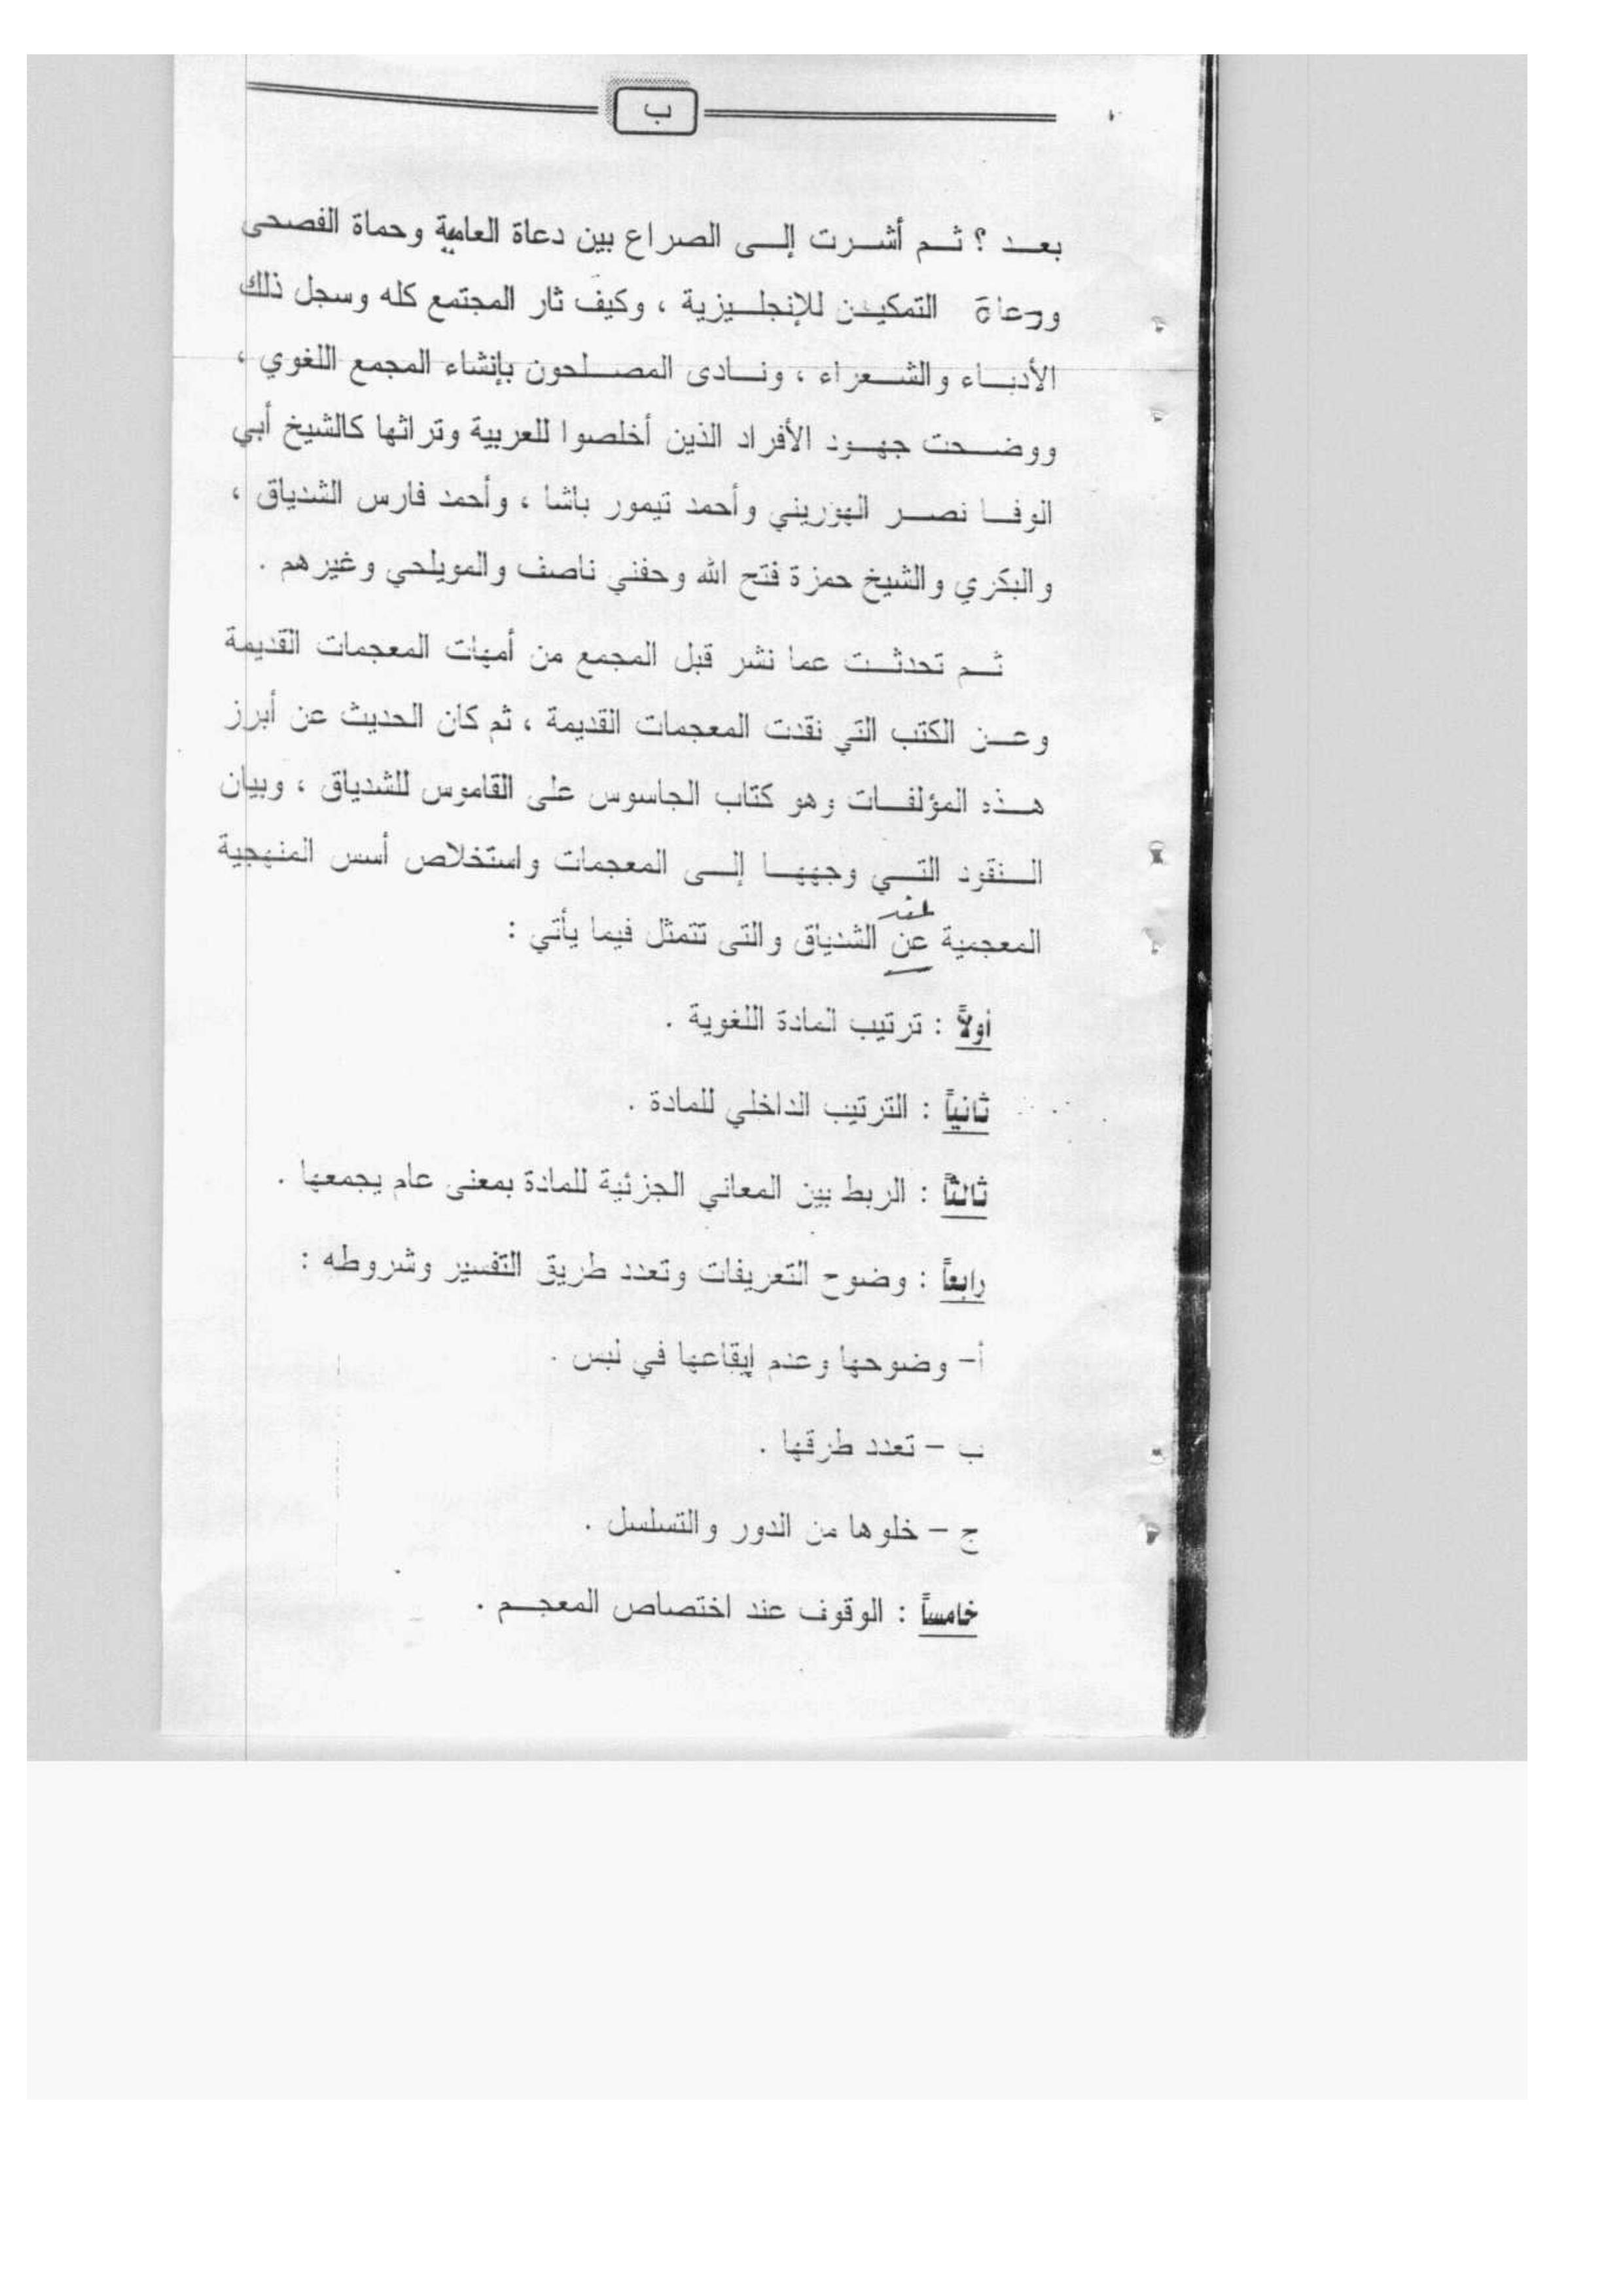 ب
بعد ؟ ثم أشرت إلى الصراع بين دعاة العامية وحماة الفصحى
ودعاة التمكين للإنجليزية ، وكيف ثار المجتمع كله وسجل ذلك
الأدباء والشعراء ، ونادى المصلحون بإنشاء المجمع اللغوي ،
ووضحت جهود الأفراد الذين أخلصوا للعربية وتراثها كالشيخ أبي
الوفا نصر الهوريني وأحمد تيمور باشا ، وأحمد فارس الشدياق ،
والبكري والشيخ حمزة فتح الله وحفني ناصف والمويلحي وغيرهم .
ثم تحدثت عما نشر قبل المجمع من أمهات المعجمات القديمة
وعن الكتب التي نقدت المعجمات القديمة ، ثم كان الحديث عن أبرز
هذه المؤلفات وهو كتاب الجاسوس على القاموس للشدياق ، وبيان
النقود التي وجهها إلى المعجمات واستخلاص أسس المنهجية
عند
المعجمية عن الشدياق والتى تتمثل فيما يأتي :
أولاً : ترتيب المادة اللغوية .
ثانياً : الترتيب الداخلي للمادة .
ثالثاً : الربط بين المعاني الجزئية للمادة بمعنى عام يجمعها .
رابعاً : وضوح التعريفات وتعدد طريق التفسير وشروطه :
أ- وضوحها وعدم إيقاعها في لبس .
ب - تعدد طرقها .
ج - خلوها من الدور والتسلسل .
خامساً : الوقوف عند اختصاص المعجم .